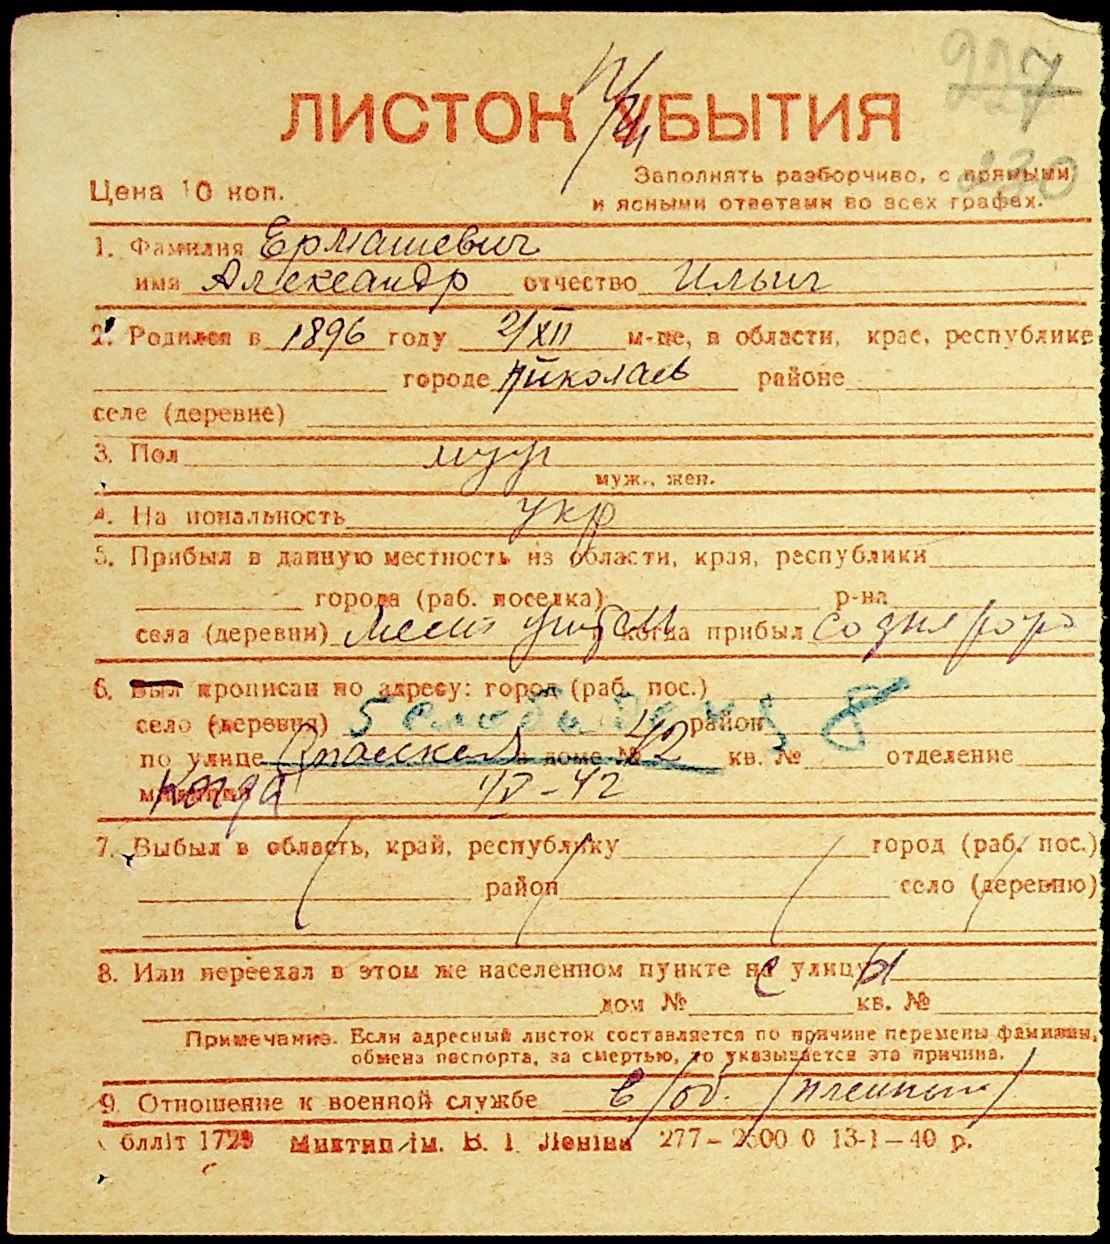 227
ЛИСТОК УБЫТИЯ
230
Цена 10 коп.
Заполнять разборчиво, с прямыми
и ясными ответами во всех графах.
1. Фамилия Ермашевич
имя Александр отчество Ильич
2. Родился в 1896 году 2/XII м-це, в области, крае, республике
городе Николаев районе
селе (деревне)
3. Пол муж
муж., жен.
4. Национальность укр
5. Прибыл в данную местность из области, края, республики
города (раб. поселка) р-на
села (деревни) Мест. и когда прибыл со дня
6. Был прописан по адресу: город (раб. пос.)
село (деревня) 5 Слободская 8 район
по улице Спасская доме № 42 кв. № отделение
милиции Когда IV-42
7. Выбыл в область, край, республику город (раб. пос.)
район село (деревню)
8. Или переехал в этом же населенном пункте на улицу
дом № кв. №
Примечание. Если адресный листок составляется по причине перемены фамилии,
обмена паспорта, за смертью, то указывается эта причина.
9. Отношение к военной службе в/об. /пленный/
блліт 1729 Миктип ім. В. І. Леніна 277-2500 0 13-1-40 р.